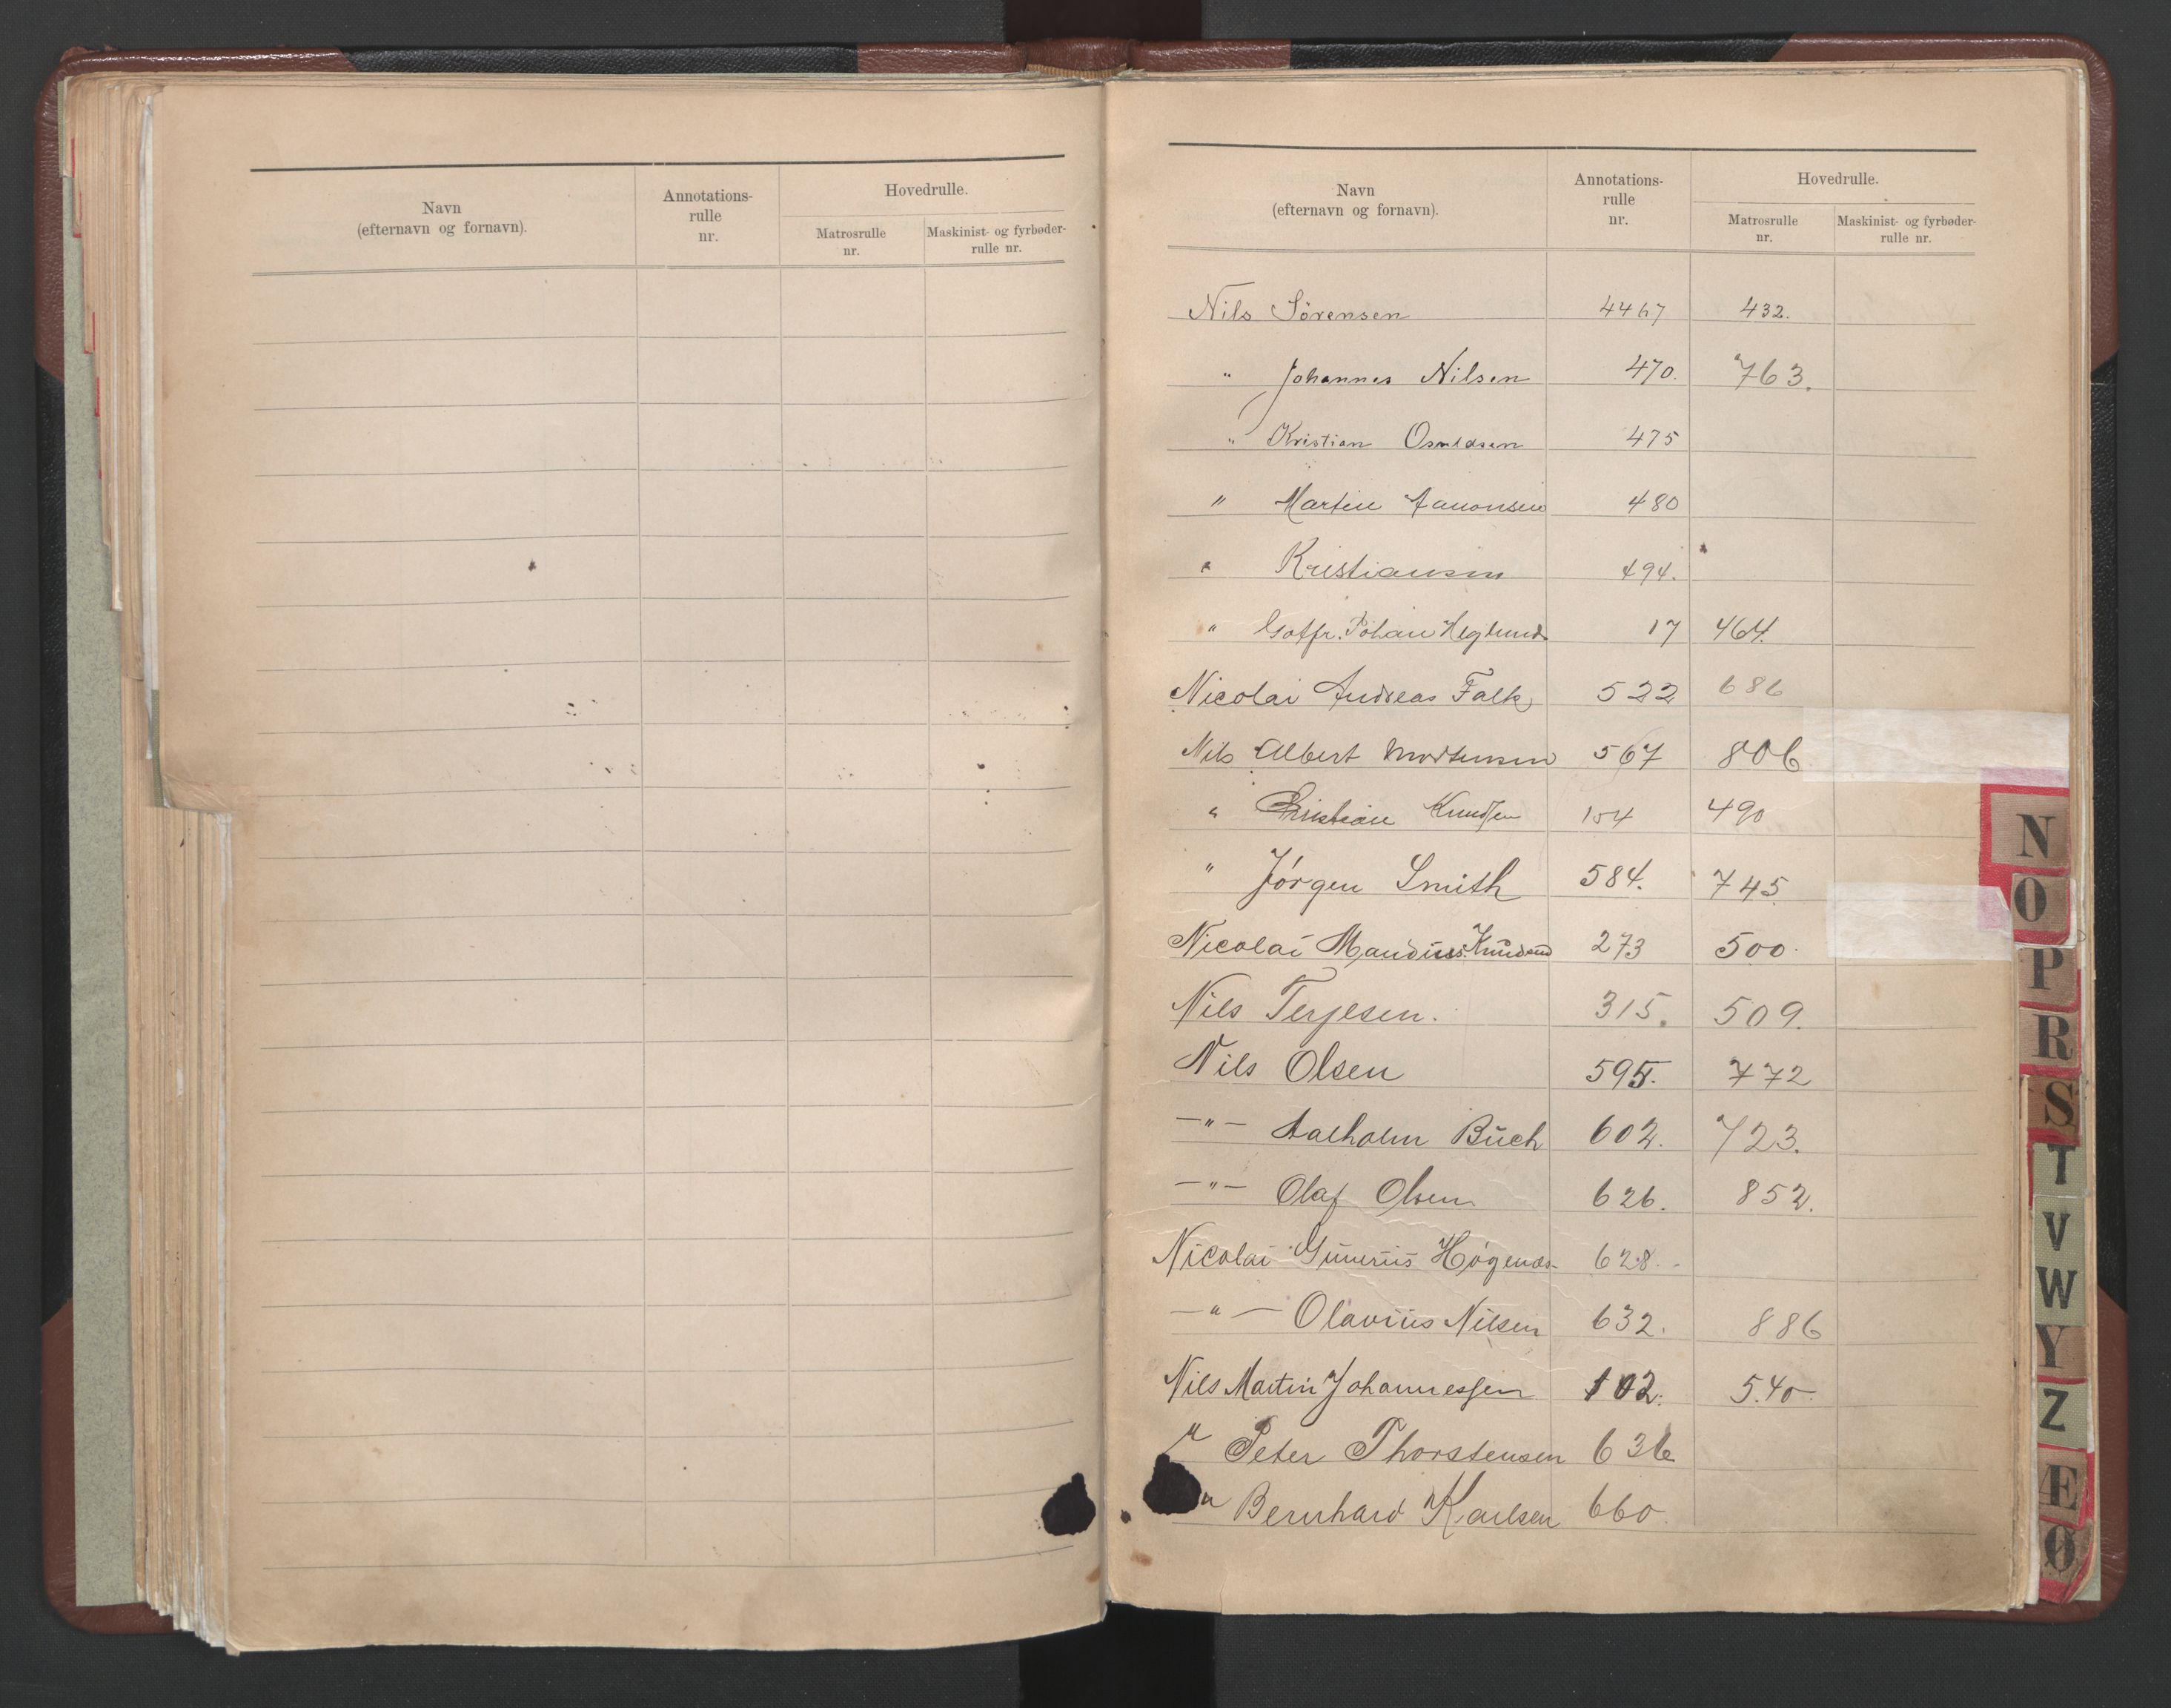 Navn
(efternavn og fornavn).
Annotations-
rulle
nr.
Hovedrulle.
Matrosrulle
nr.
Maskinist- og fyrbøder-
rulle nr.
Navn
(efternavn og fornavn).
Annotations-
rulle
nr.
Hovedrulle.
Matrosrulle
nr.
Maskinist- og fyrbøder-
rulle nr.
Nils Sörensen 4467 432.
" Johannes Nilsen 470. 763.
" Kristian 475
" Martin Aanonsen 480
" Kristiansen 494.
" Gotfr. Johan Heglund 17 464.
Nicolai Andreas Falk 522 686
Nils Albert Mortensen 567 806
" Christian Knudsen 154 490
" Jörgen Smith 584. 745.
Nicolai Mandius Knudsen 273 500.
Nils Terjesen. 315. 509.
Nils Olsen 595. 772
-"- Aalholm Buch 602. 723.
-"- Olaf Olsen 626. 852.
Nicolai Gunerius Høgenæs 628.
-"- Olavius Nilsen 632. 886
Nils Martin Johannessen 102. 540.
" Peter Thorstensen 636
" Bernhard Karlsen 660
N
O
P
R
S
T
V
W
Y
Z
Æ
Ø